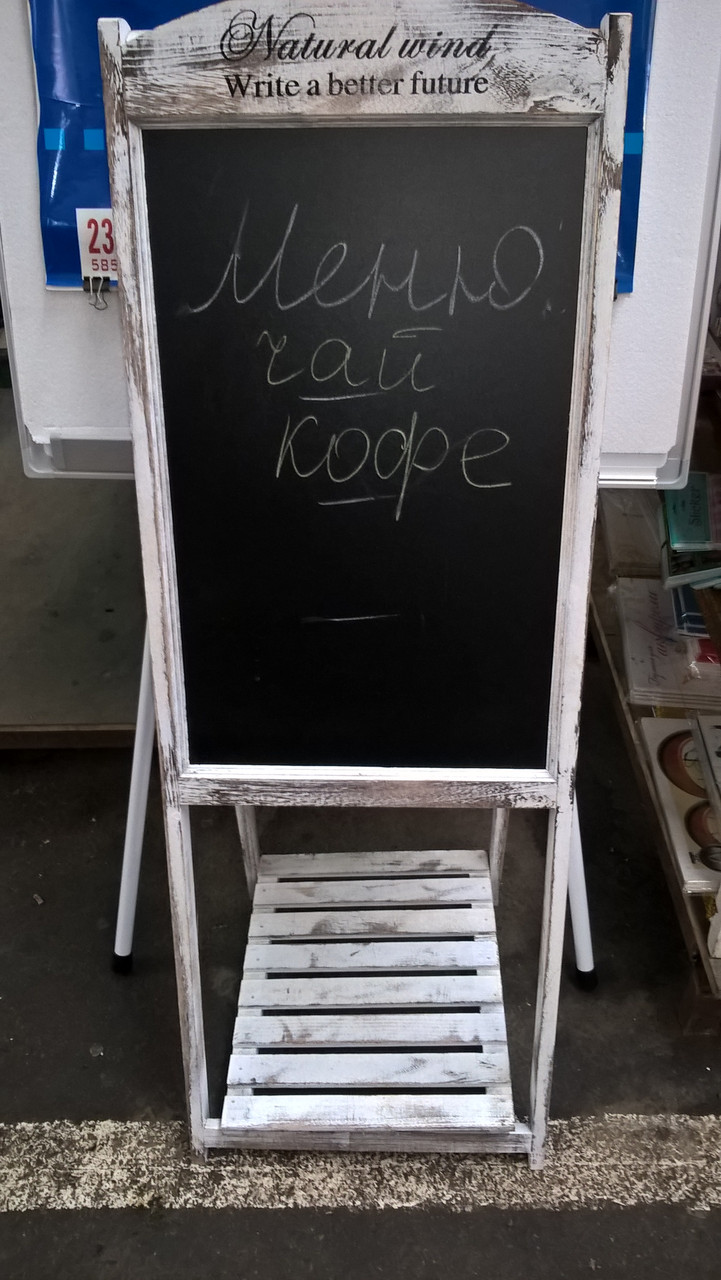 Natural wind
Write a better future
Меню:
чай
кофе
23
585